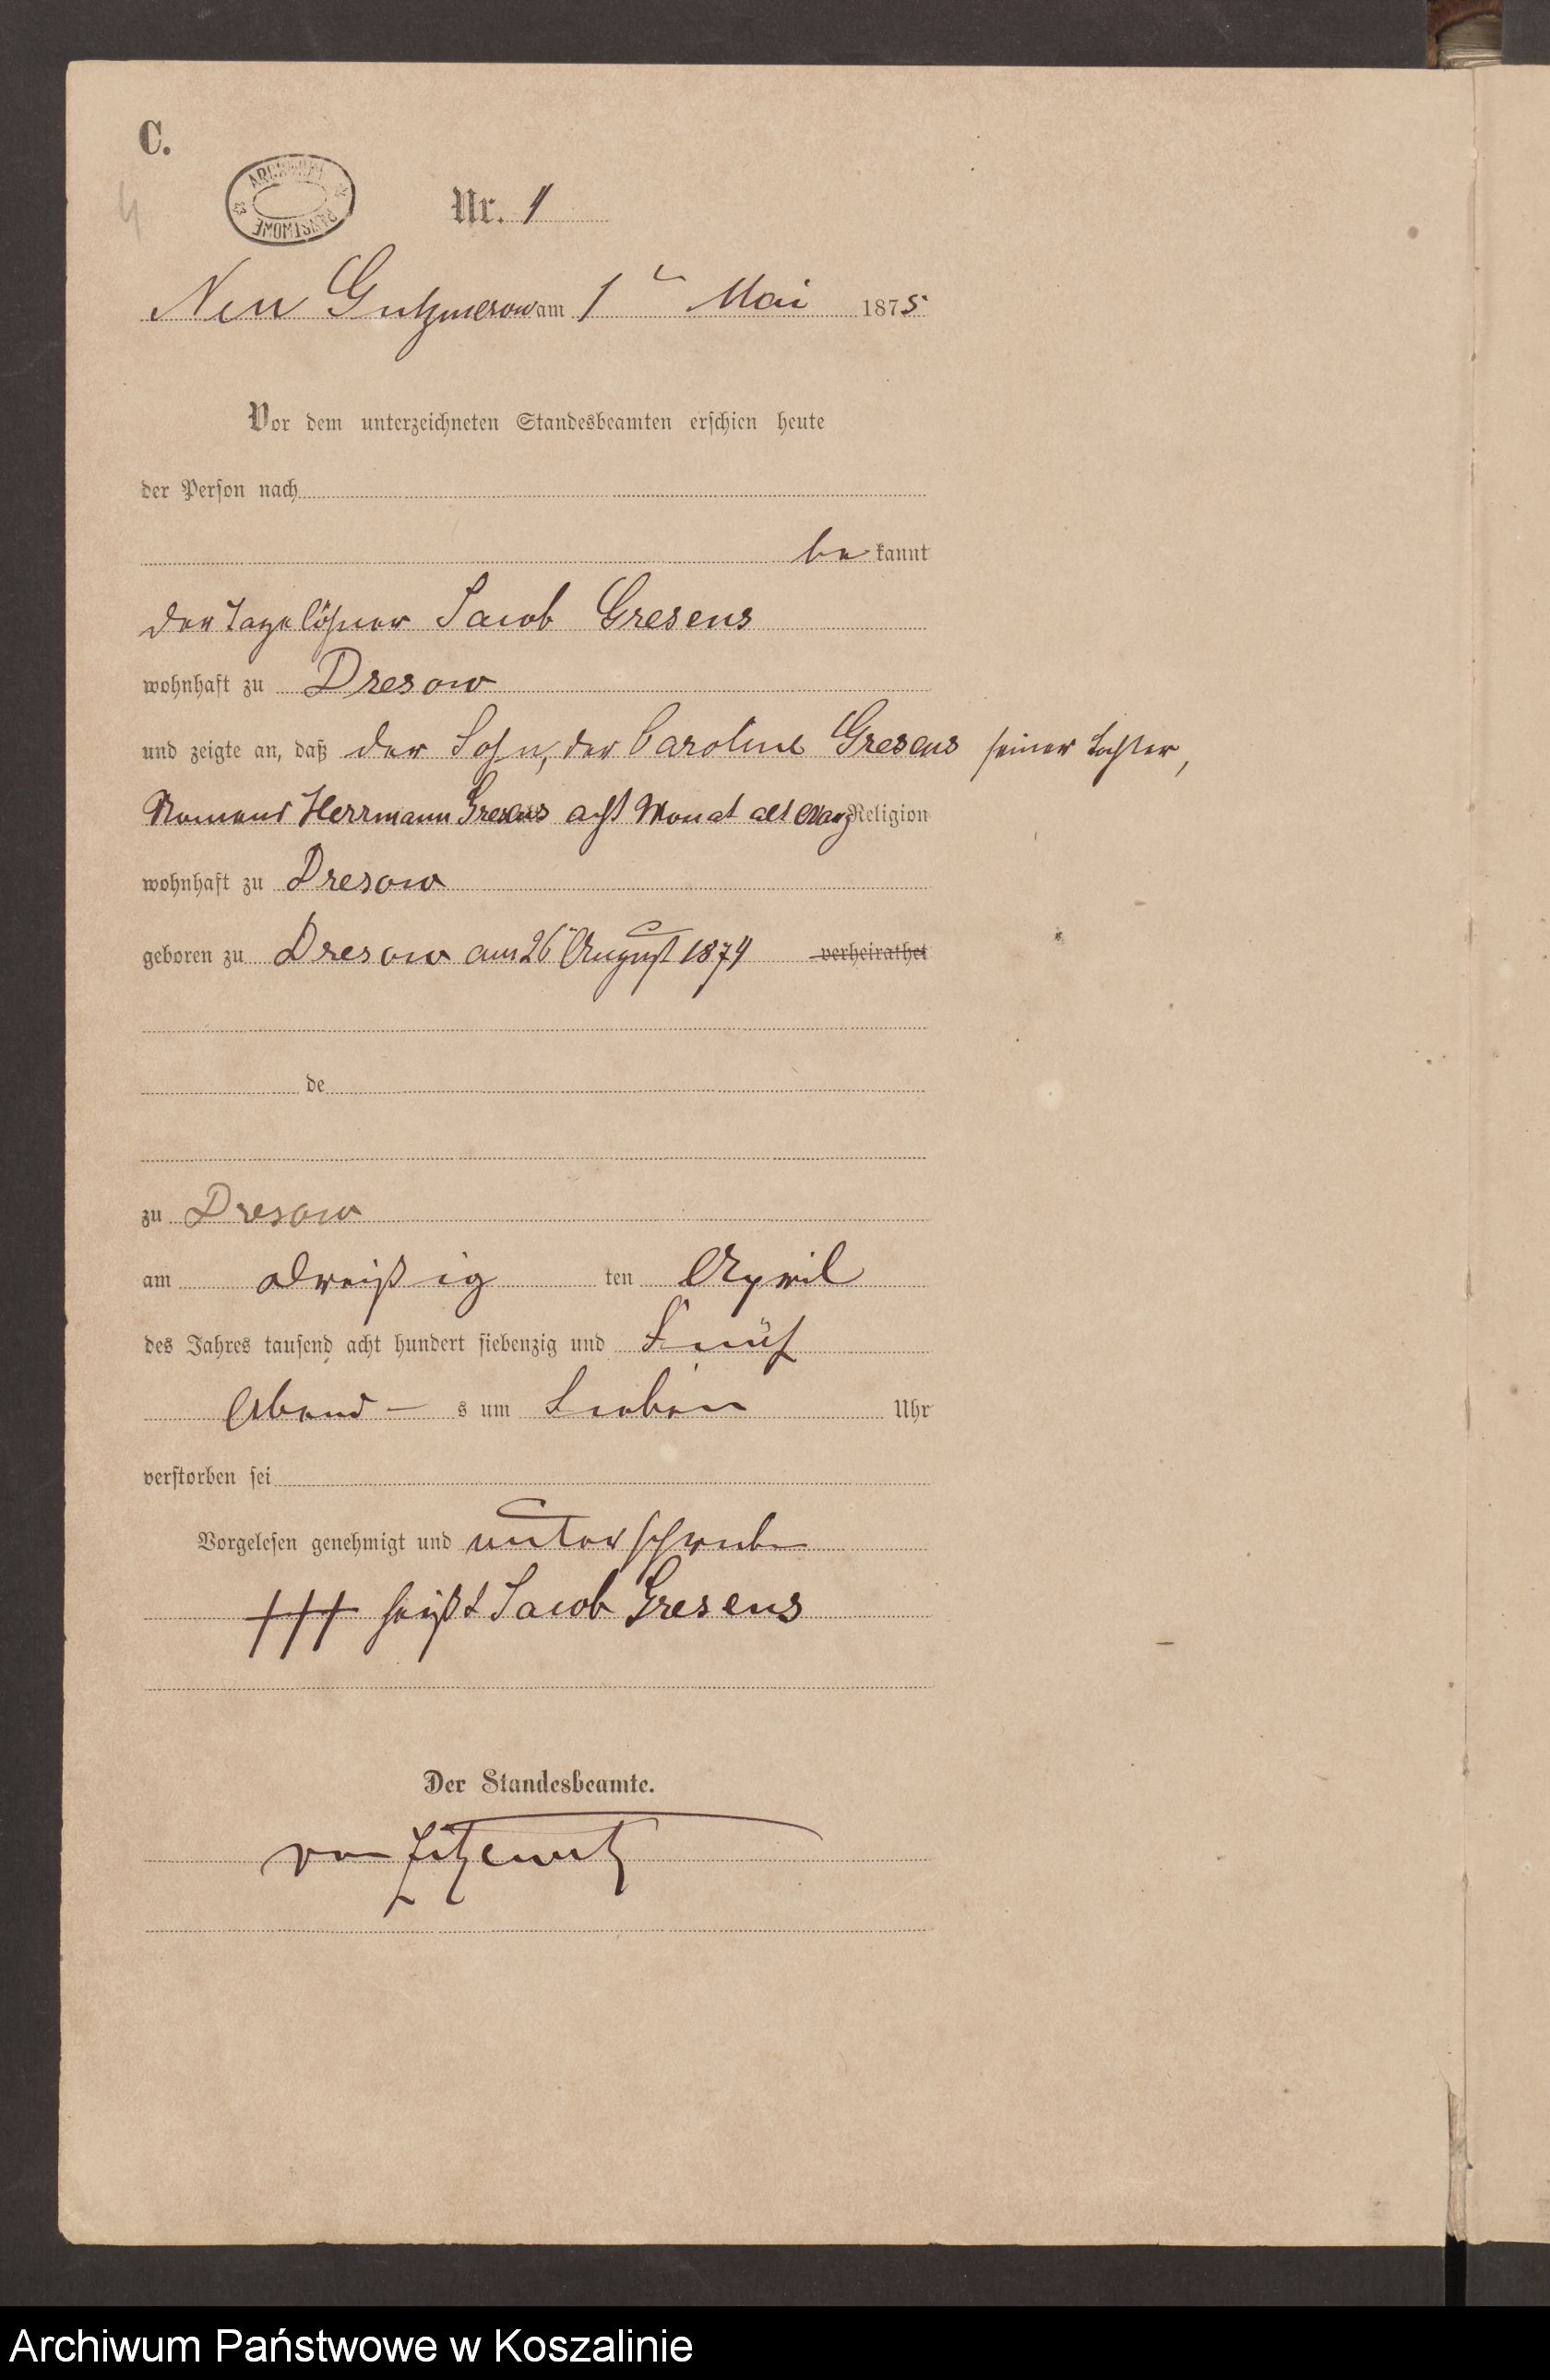 C.
4
ARCHIWUM PAŃSTWOWE
Nr. 1
Neu Gutzmerow am 1 Mai 1875
Vor dem unterzeichneten Standesbeamten erschien heute
der Person nach
be kannt
der Tagelöhner Jacob Gresens
wohnhaft zu Dresow
und zeigte an, daß der Sohn, der Caroline Gresens seiner Tochter,
Namens Herrmann Gresens acht Monat alt evang Religion
wohnhaft zu Dresow
geboren zu Dresow am 26 August 1874 verheirathet
de
zu Dresow
am dreißig ten April
des Jahres tausend acht hundert siebenzig und Fünf
Abend – s um Sieben Uhr
verstorben sei
Vorgelesen genehmigt und unterschrieben
+++ heißt Jacob Gresens
Der Standesbeamte.
von Zitzewitz
Archiwum Państwowe w Koszalinie